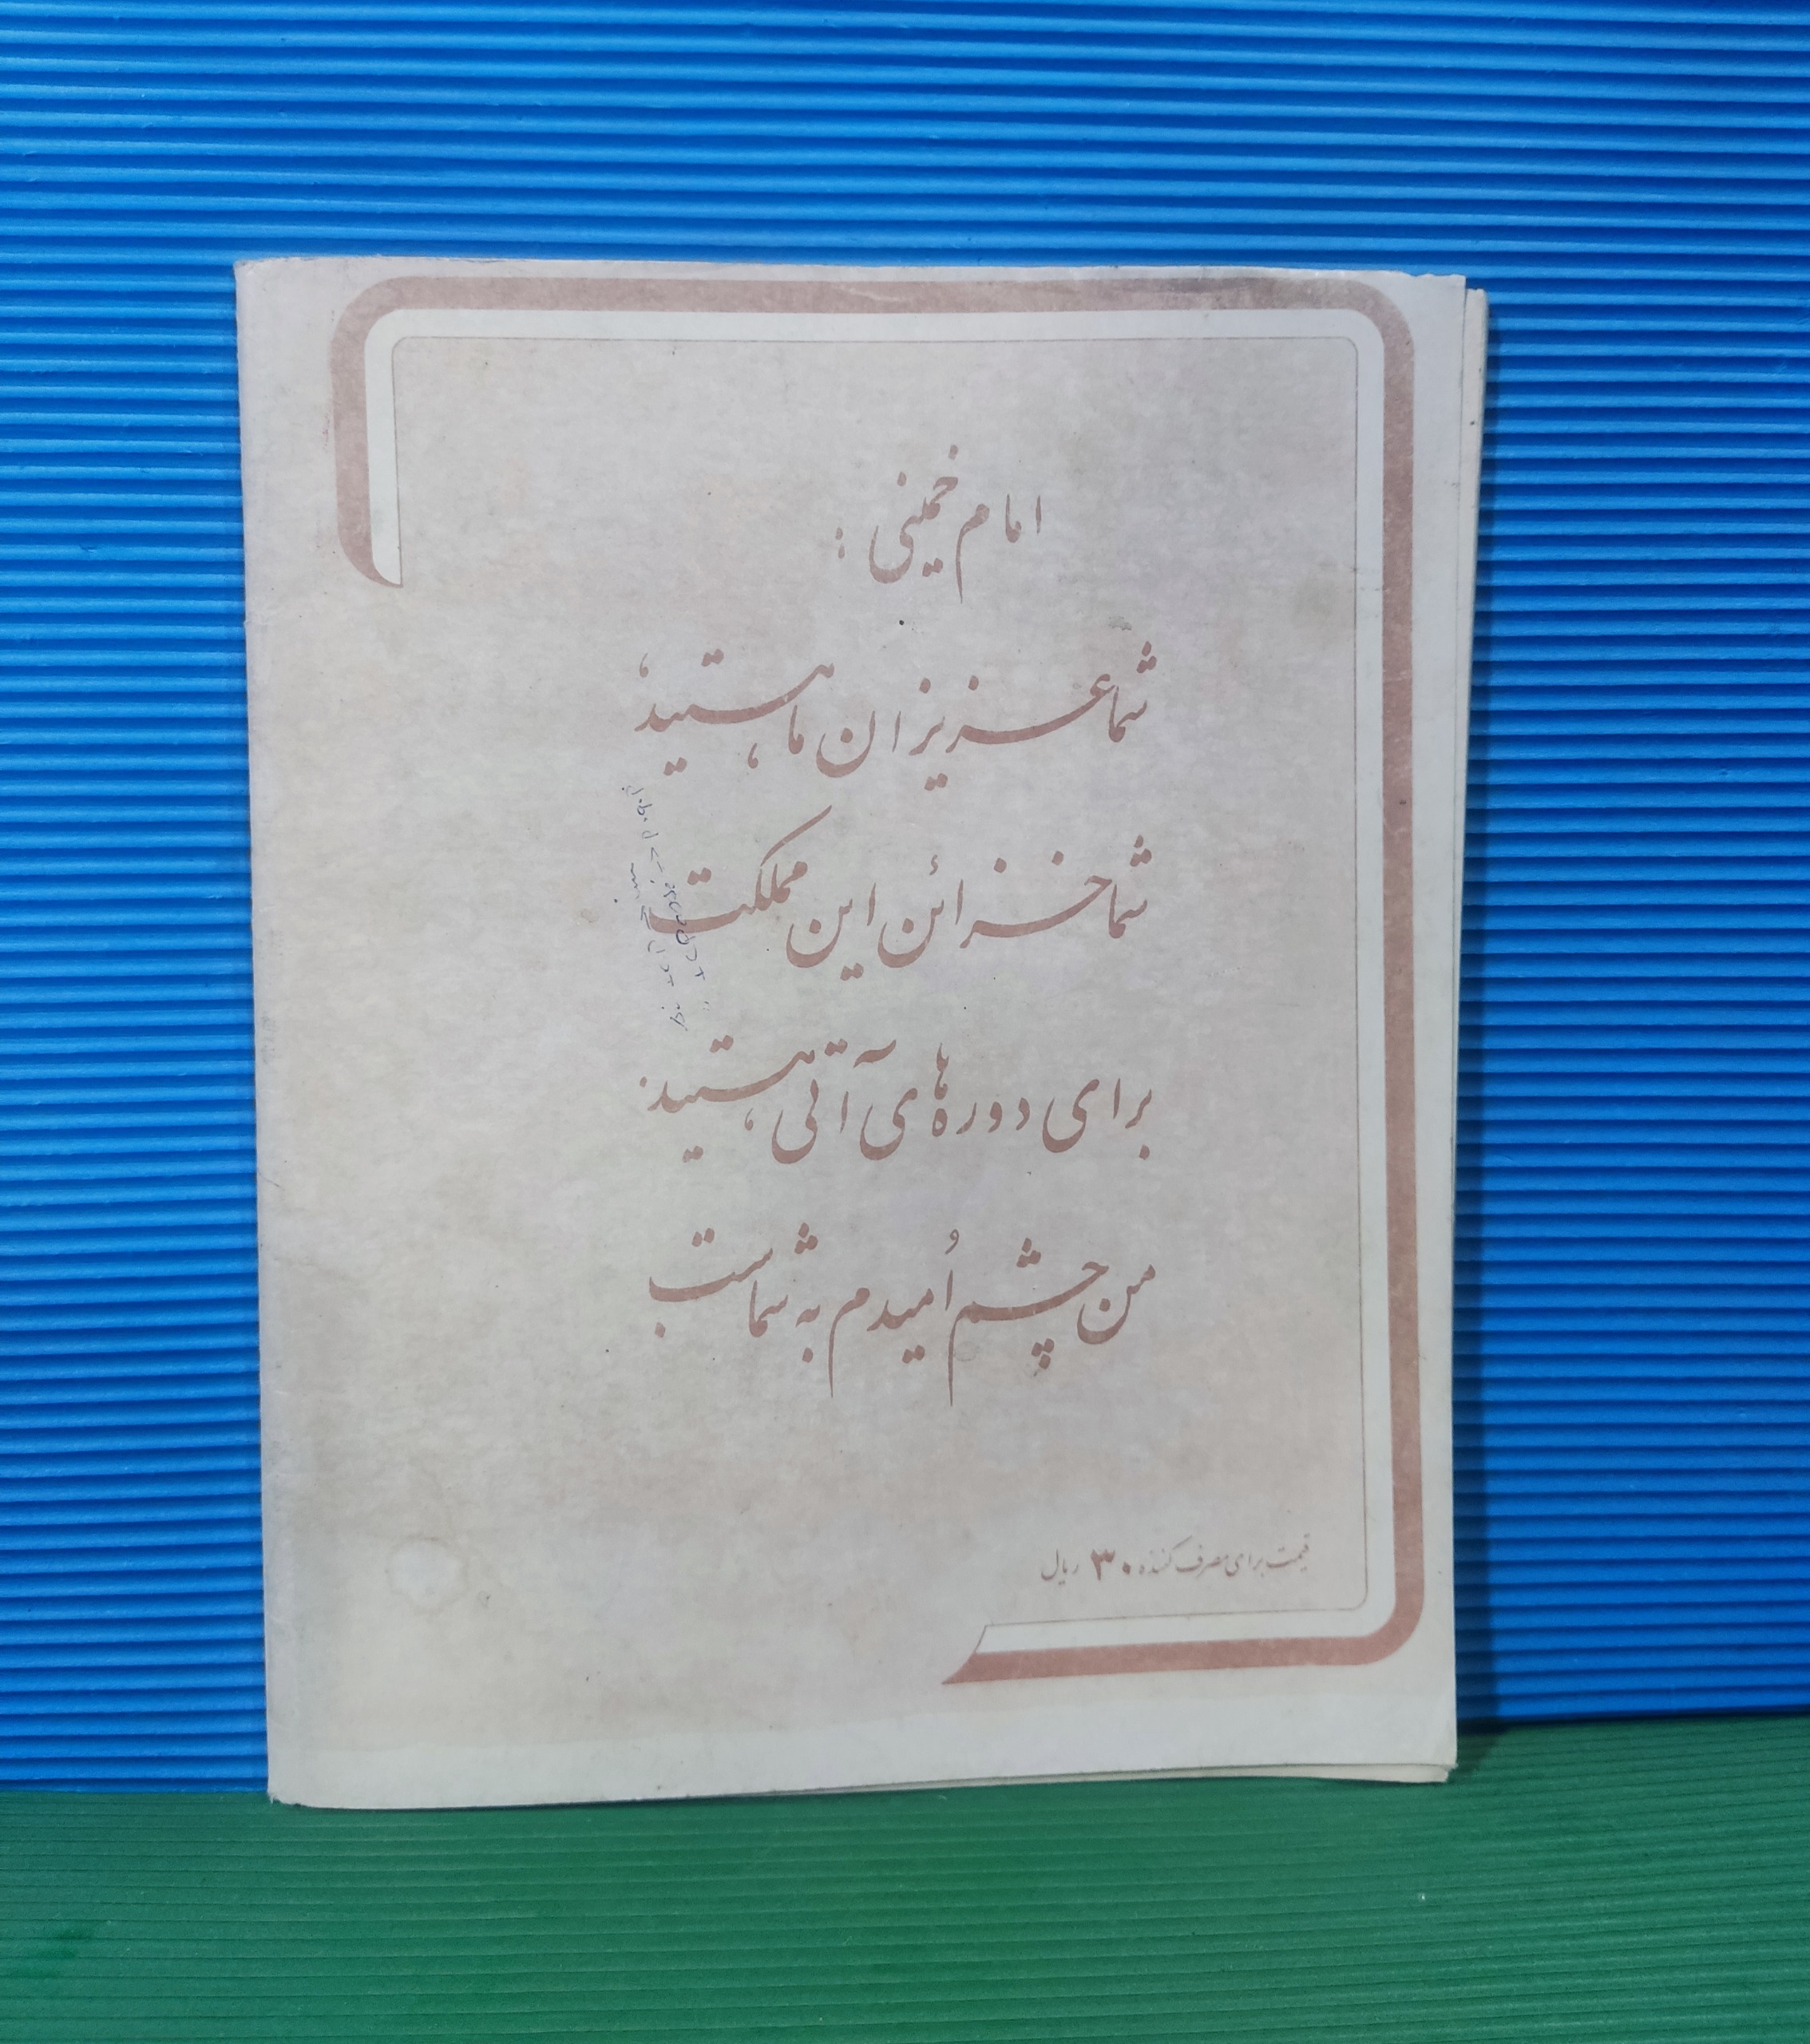 امام خمینی :
شما عزیزان ما، هستید،
شما خزائن این مملکت
برای دوره‌های آتی، هستید
من چشم اُمیدم به شماست
قیمت برای مصرف کننده ۳۰ ریال